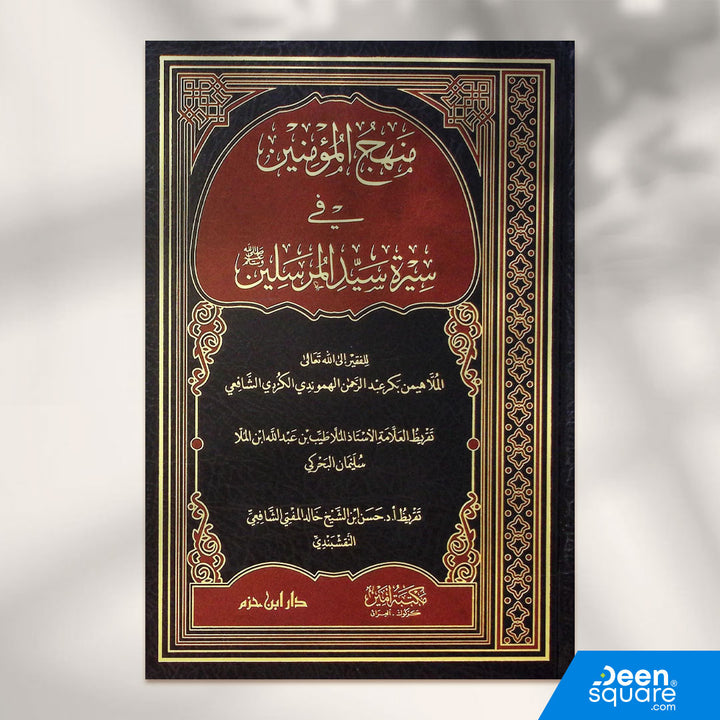 منهج المؤمنين
في
سيرة سيد المرسلين ﷺ
للفقير إلى الله تعالى
الملا هيمن بكر عبد الرحمن الهموندي الكردي الشافعي
تقريظ العلامة الأستاذ الملا طيب بن عبد الله ابن الملا
سليمان البحركي
تقريظ أ.د. حسن ابن الشيخ خالد المفتي الشافعي
النقشبندي
مكتبة أمير
كركوك - العراق
دار ابن حزم
Deen
square®
.com